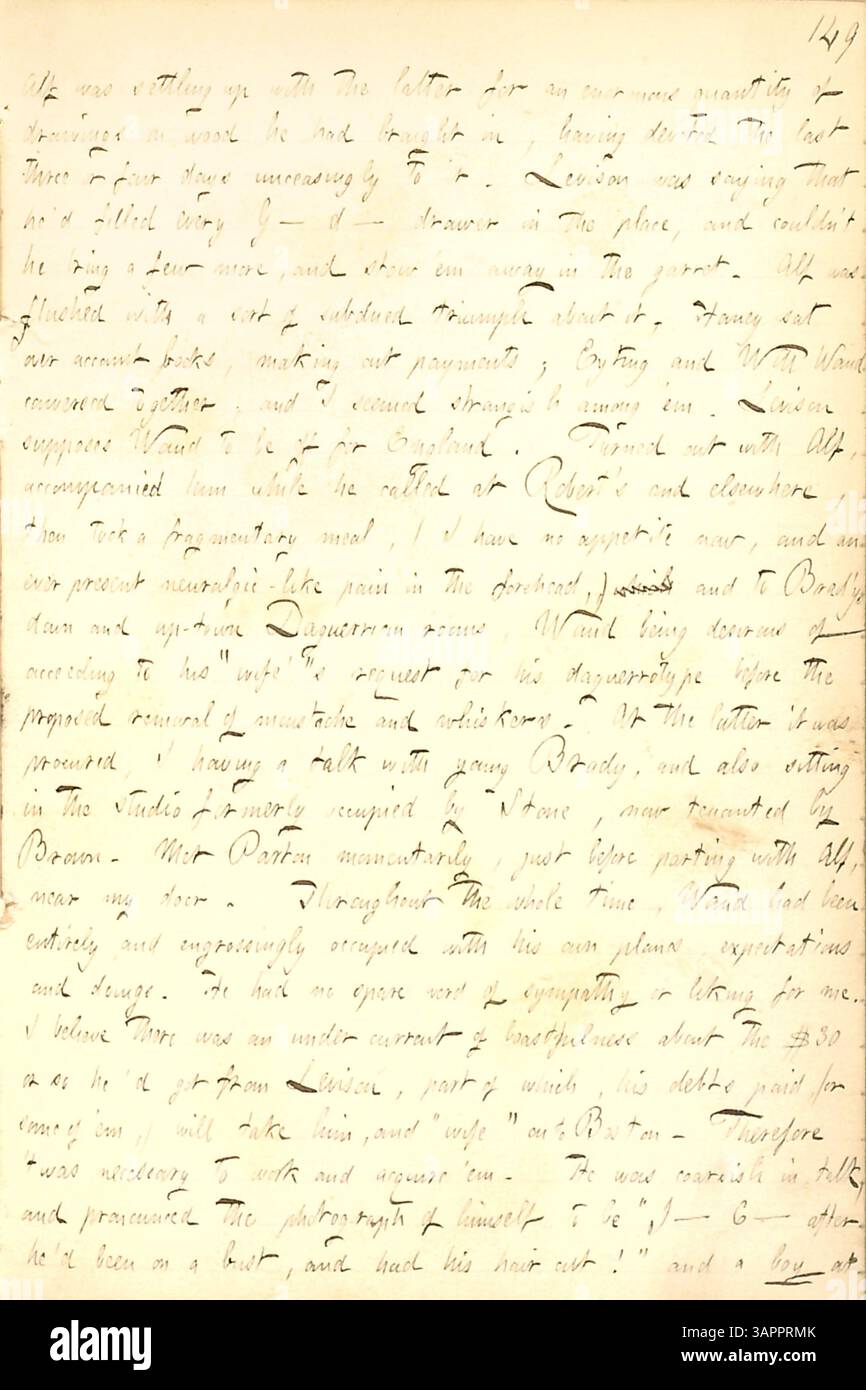 149
Alf was settling up with the latter for an enormous quantity of
drawings on wood he had brought in, having devoted the last
three or four days unceasingly to it. Levison was saying that
he'd filled every G— d— drawer in the place, and couldn't
he bring a few more, and stow 'em away in the garret. Alf was
flushed with a sort of subdued triumph about it. Haney sat
over account books, making out payments; Eyting and Will Waud
conversed together, and I seemed strangish among 'em. Levison
supposes Waud to be off for England. Turned out with Alf,
accompanied him while he called at Robert's and elsewhere,
then took a fragmentary meal, (I have no appetite now, and an
ever present neuralgic-like pain in the forehead,) and to Brady's
down and up-town Daguerrian rooms, Waud being desirous of
acceeding to his "wife"'s request for his daguerrotype before the
proposed removal of moustache and whiskers. At the latter it was
procured I having a talk with young Brady, and also sitting
in the studio formerly occupied by Stone, now tenanted by
Brown. Met Parton momentarily, just before parting with Alf,
near my door. Throughout the whole time, Waud had been
entirely and engrossingly occupied with his own plans, expectations
and doings. He had no spare word of sympathy or liking for me.
I believe there was an under current of boastfulness about the $30
or so he'd got from Levison, part of which, his debts paid, (or
some of 'em,) will take him, and "wife" on to Boston. Therefore
'twas necessary to work and acquire 'em. He was coarsish in talk,
and pronounced the photograph of himself to be "J— C— after
he'd been on a bust, and had his hair cut!" and a boy at
alamy
Image ID: 3APPRMK
www.alamy.com